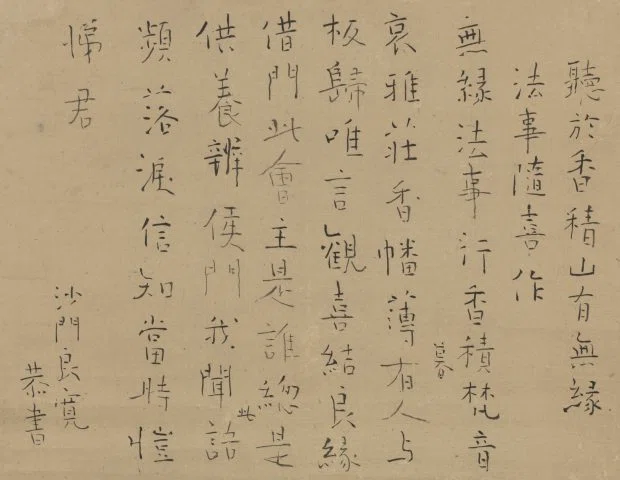 聽於香積山有無緣
法事隨喜作
無緣法事行香積梵音
哀雅莊香幡薄暮有人与
板歸唯言觀喜結良緣
借門此會主是誰總是
供養辨侯門我聞此語
頻落淚信知當時愷
悌君
沙門良寛
恭書